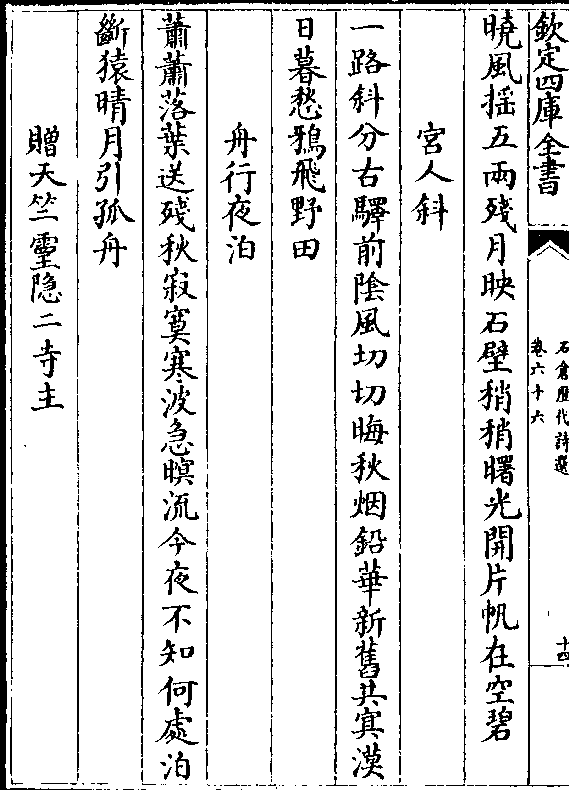 欽定四庫全書
石倉歴代詩選
卷六十六
十四
曉風揺五兩殘月映石壁稍稍曙光開片帆在空碧
宮人斜
一路斜分古驛前陰風切切晦秋烟鉛華新舊共寞漠
日暮愁鴉飛野田
舟行夜泊
蕭蕭落葉送殘秋寂寞寒波急暝流今夜不知何處泊
斷猿晴月引孤舟
贈天竺靈隐二寺主